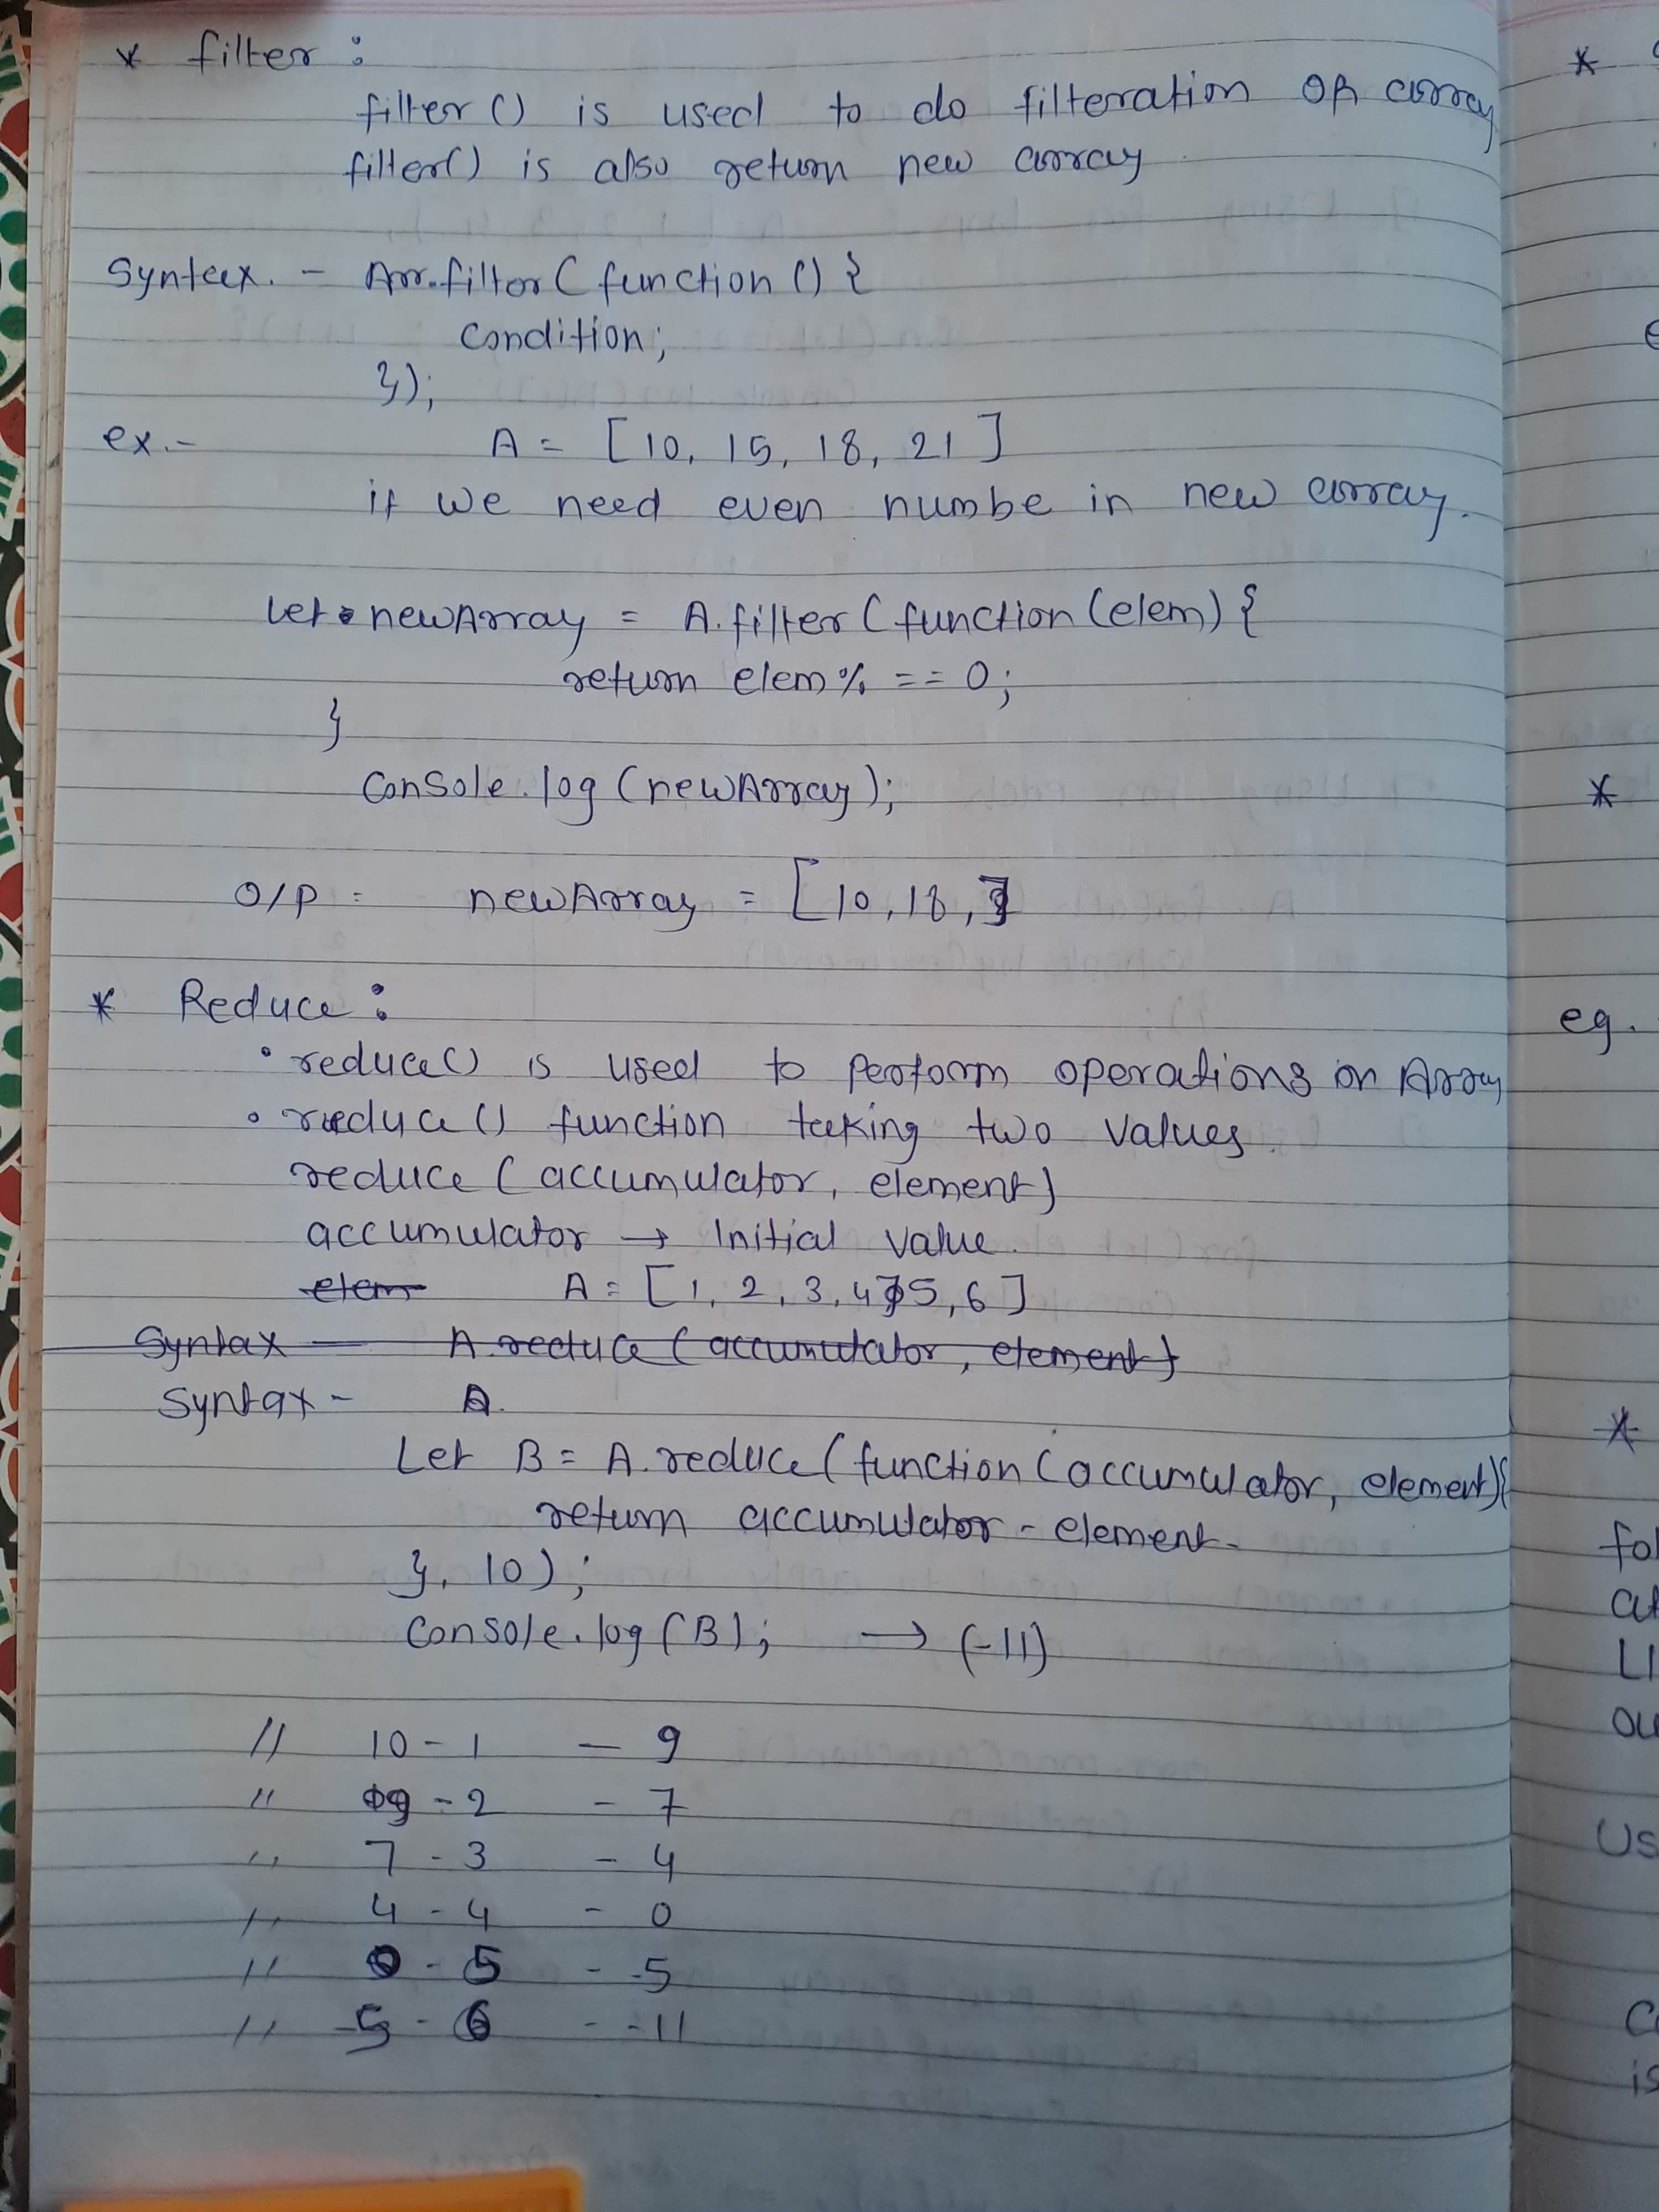 * filter :
filter () is used to do filteration on array
filter() is also return new array
Syntax. - Arr.filter ( function () {
Condition;
});
ex.- A = [10, 15, 18, 21 ]
if we need even numbe in new array.
Let newArray = A.filter ( function (elem) {
return elem % == 0;
}
Console.log (newArray);
O/P = newArray = [10, 18, ]
* Reduce :
• reduce() is used to perform operations on Array
• reduce () function taking two values.
reduce ( accumulator, element)
accumulator → Initial value.
elem A = [1, 2, 3, 4, 5, 6 ]
Syntax — A.reduce ( accumulator, element)
Syntax - A.
Let B = A.reduce ( function ( accumulator, element){
return accumulator - element.
}, 10 ) ;
Console.log (B); → (-11)
// 10 - 1 — 9
// 9 - 2 - 7
// 7 - 3 - 4
// 4 - 4 - 0
// 0 - 5 - -5
// -5 - 6 - -11
*
*
eg.
*
Us
is